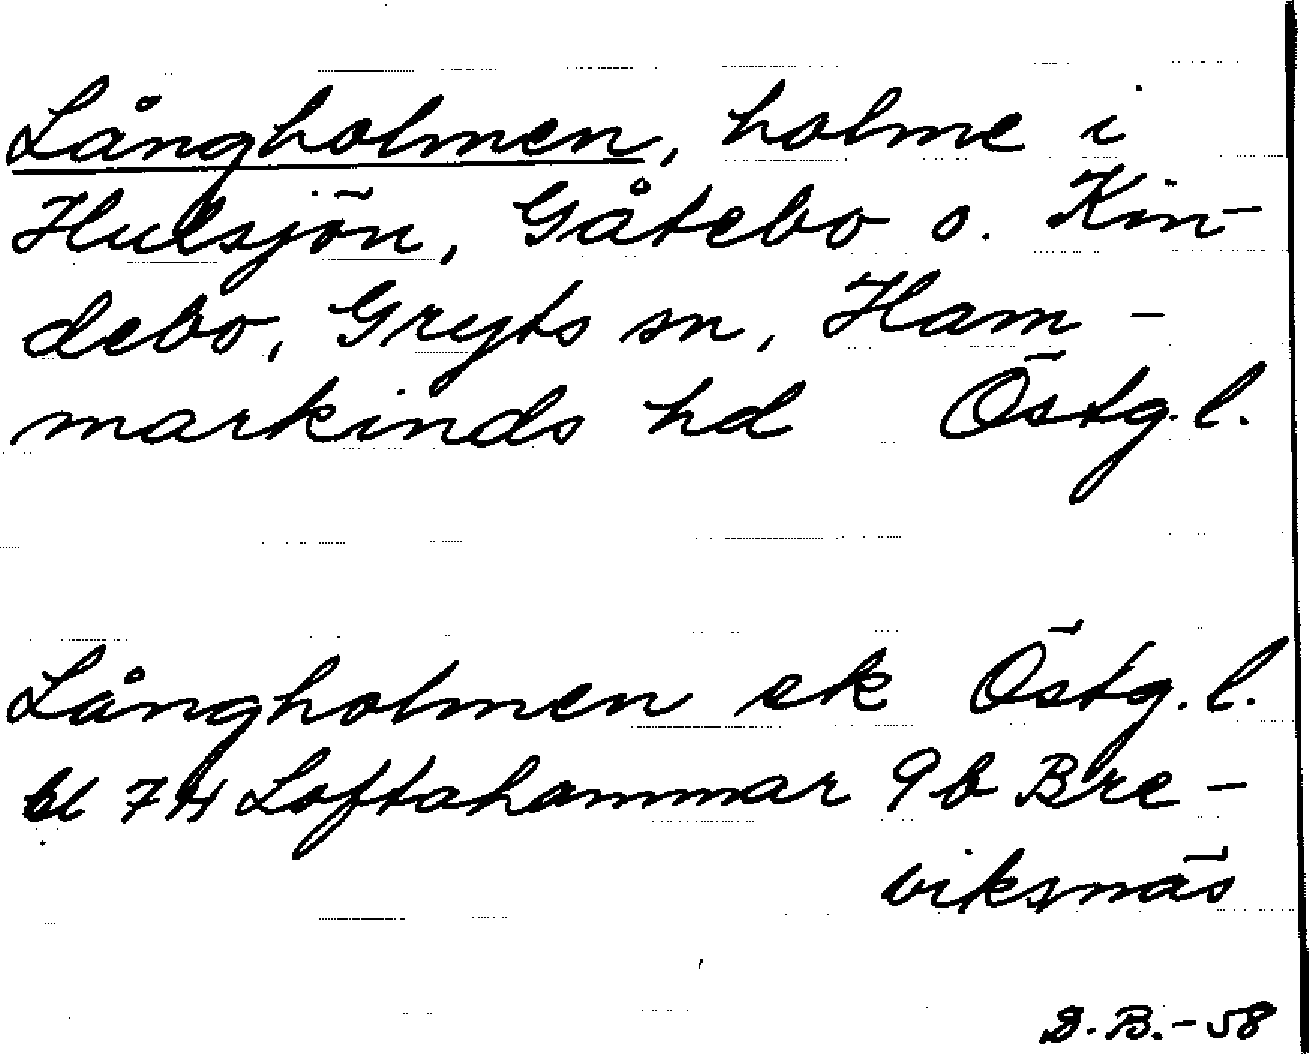 Långholmen, holme i
Hulsjön, Gåtebo o. Kin-
debo, Gryts sn, Ham-
markinds hd Östg. l.
Långholmen ek Östg. l.
bl 7H Loftahammar 9b Bre-
viksnäs
B. -58